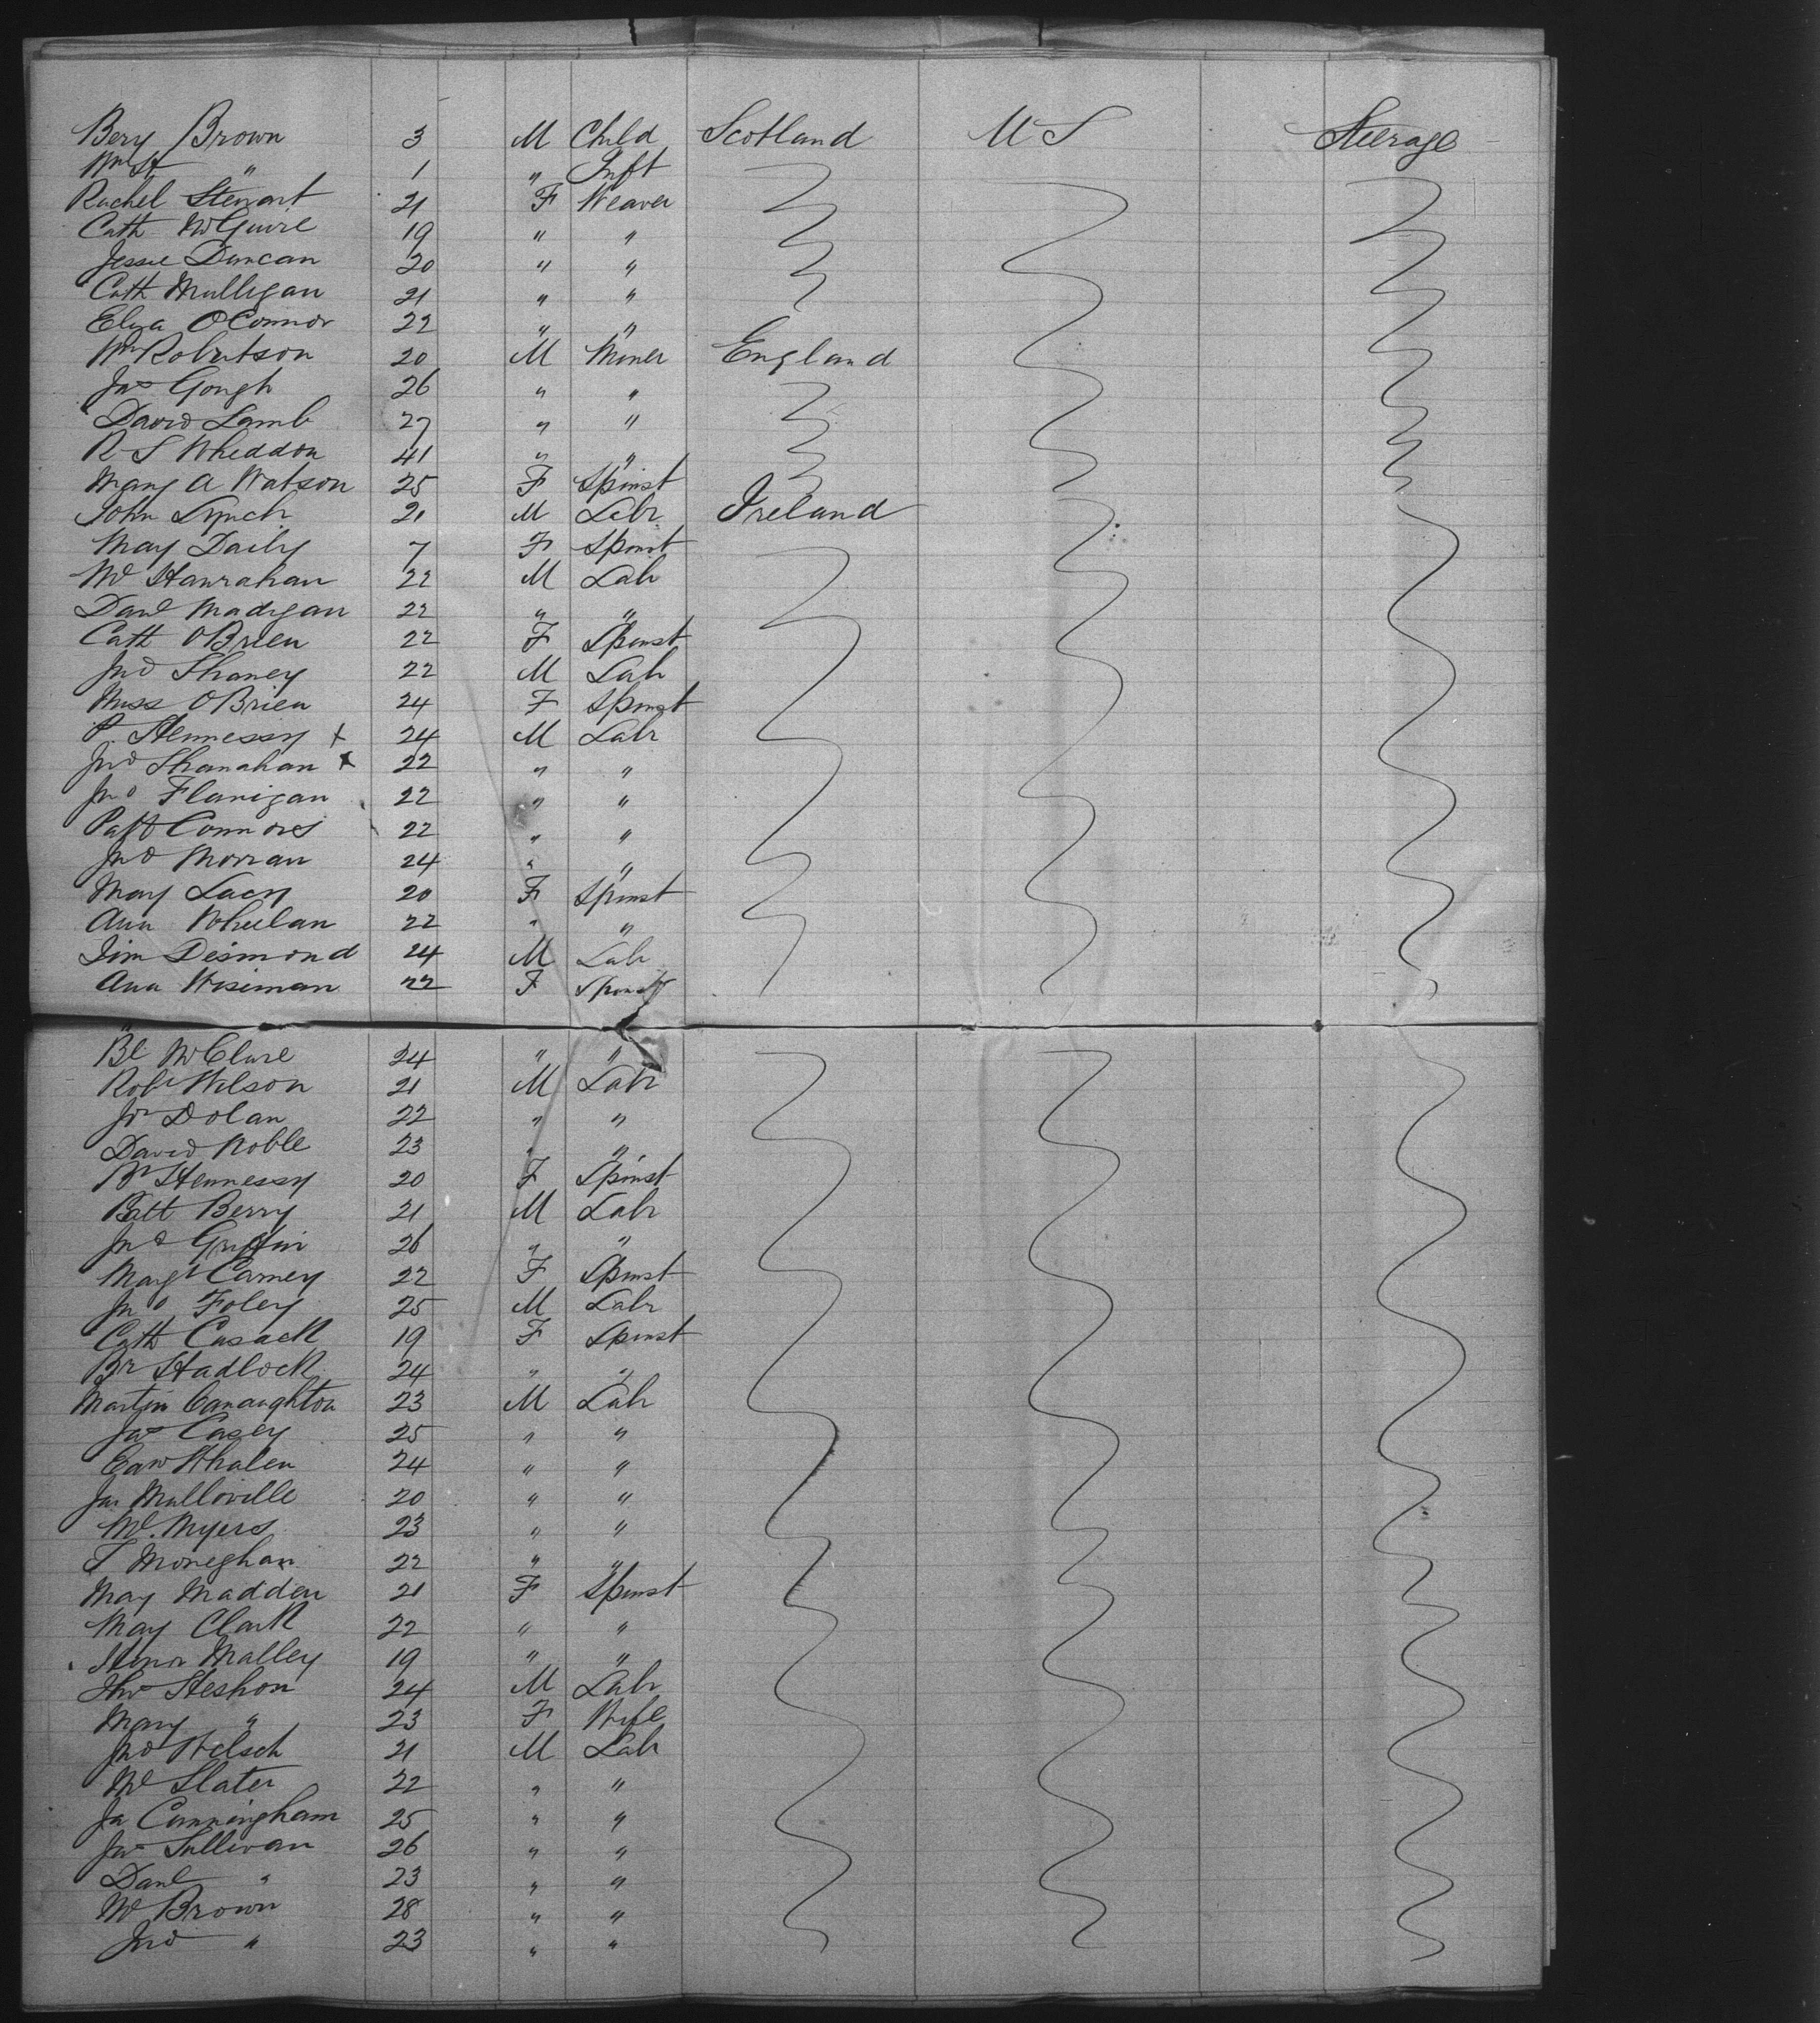 Benj Brown 3 M Child Scotland U S Steerage
Wm H " 1 " Inft
Rachel Stewart 21 F Weaver
Cath McGuire 19 " "
Jessie Duncan 20 " "
Cath Mulligan 21 " "
Eliza O'Connor 22 " "
Wm Robertson 20 M Miner England
Jas Gough 26 " "
David Lamb 27 " "
R S Wheddon 41 " "
Mary A Watson 25 F Spinst
John Lynch 21 M Labr Ireland
Mary Daily 7 F Spinst
Ml Hanrahan 22 M Labr
Danl Madigan 22 " "
Cath OBrien 22 F Spinst
Jno Shaney 22 M Labr
Miss OBrien 24 F Spinst
P. Hennessy + 24 M Labr
Jno Shanahan x 22 " "
Jno Flanigan 22 " "
Patt Connors 22 " "
Jno Morran 24 " "
Mary Lacy 20 F Spinst
Ann Wheelan 22 " "
Tim Desmond 24 M Labr
Ann Wiseman 22 F Spinst
McClure 24 " "
Robt Wilson 21 M Labr
Dolan 22 " "
David Noble 23 " "
Br Hennessy 20 F Spinst
Patt Berry 21 M Labr
Jno Griffin 26 " "
Margt Carney 22 F Spinst
Jno Foley 25 M Labr
Cath Cusack 19 F Spinst
Br Hadlock 24 " "
Martin Canaughton 23 M Labr
Jas Casey 25 " "
Edw Whalen 24 " "
Jas Mulloville 20 " "
Ml. Myers 23 " "
T Moneghan 22 " "
Mary Madden 21 F Spinst
Mary Clark 22 " "
Honor Malley 19 " "
Thos Heshon 24 M Labr
Mary " 23 F Wife
Jno Welsch 21 M Labr
Ml Slater 22 " "
Ja Cunningham 25 " "
Jno Sullivan 26 " "
Danl " 23 " "
Ml Brown 28 " "
Jno " 23 " "